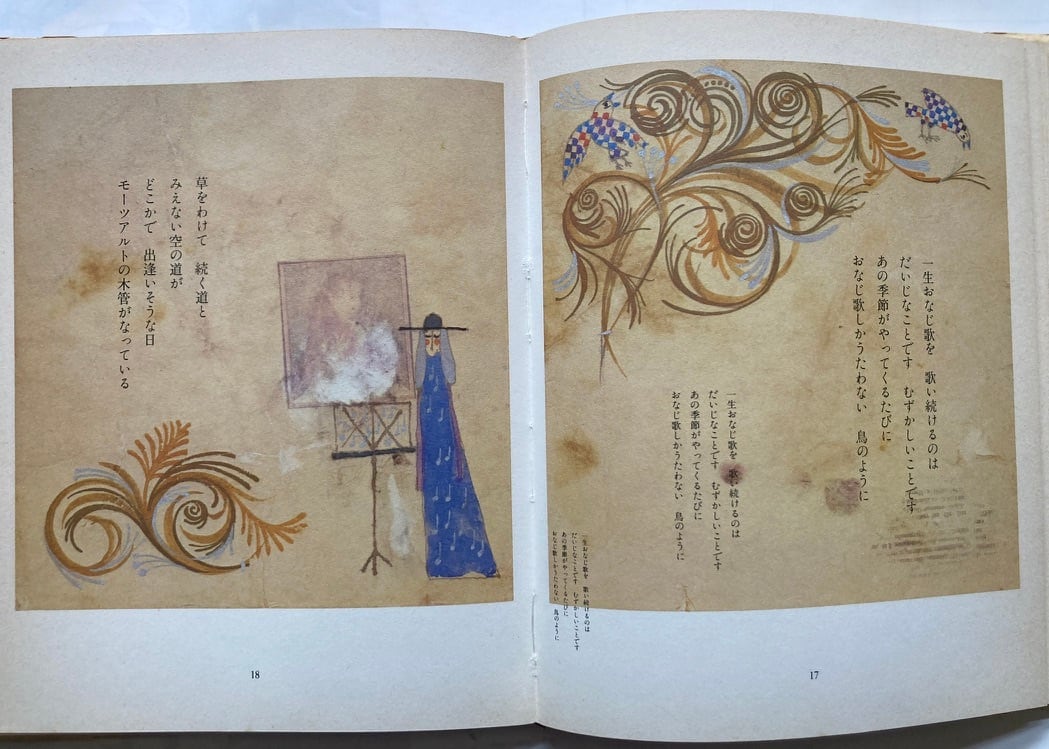 一生おなじ歌を　歌い続けるのは
だいじなことです　むずかしいことです
あの季節がやってくるたびに
おなじ歌しかうたわない　鳥のように
一生おなじ歌を　歌い続けるのは
だいじなことです　むずかしいことです
あの季節がやってくるたびに
おなじ歌しかうたわない　鳥のように
一生おなじ歌を　歌い続けるのは
だいじなことです　むずかしいことです
あの季節がやってくるたびに
おなじ歌しかうたわない　鳥のように
17
草をわけて　続く道と
みえない空の道が
どこかで　出逢いそうな日
モーツアルトの木管がなっている
18